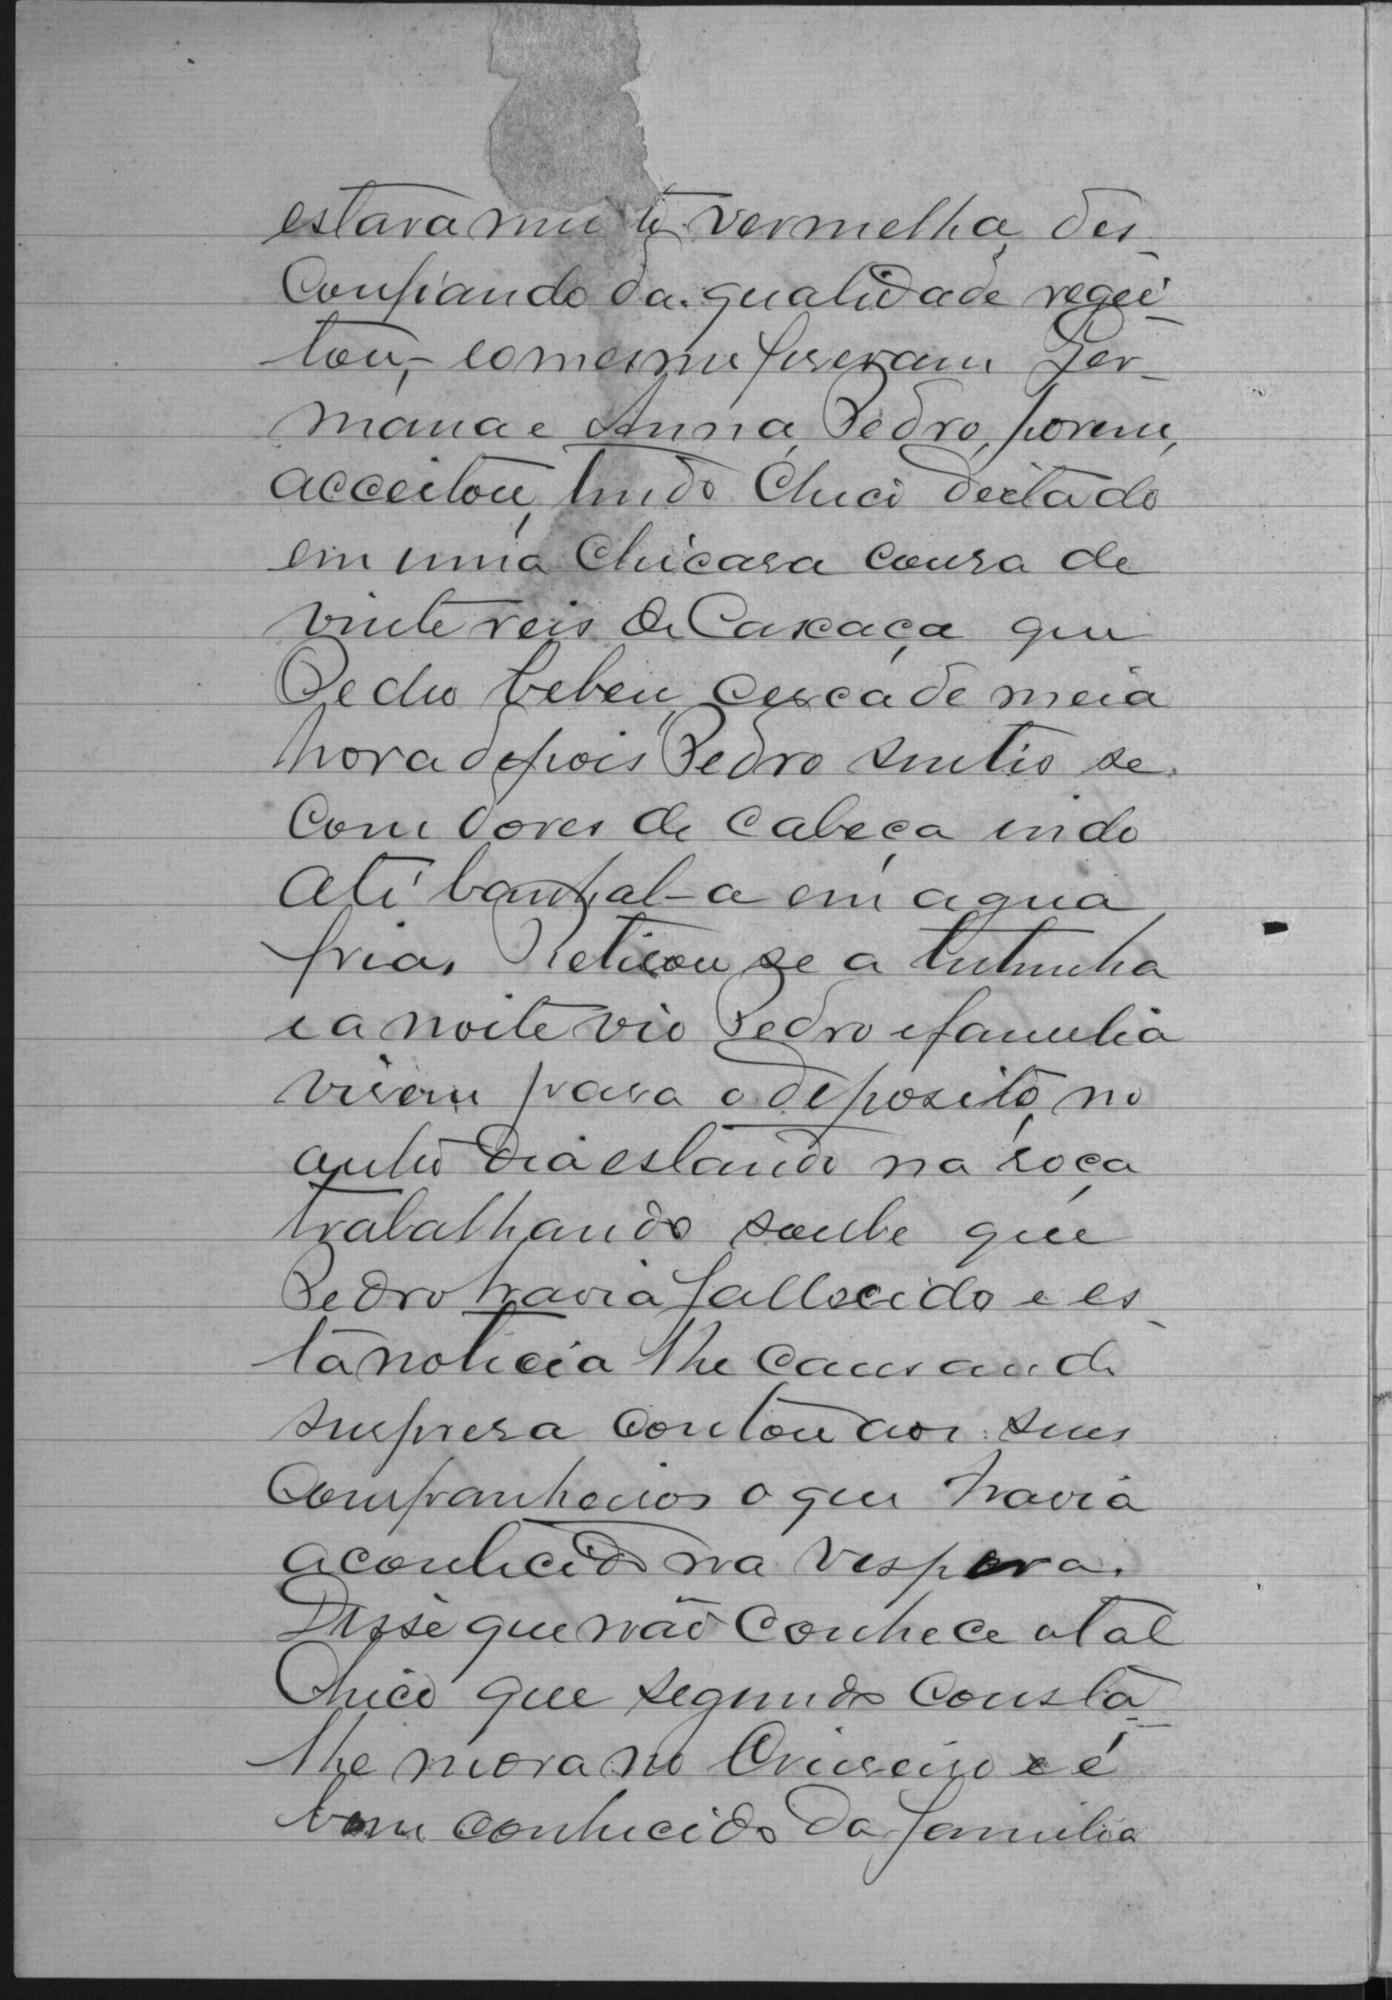 estava muito vermelha, des-
confiando da qualidade regei-
tou, e o mesmo fiseram Ger-
mana e Anna, Pedro, porem,
acceitou, tendo Chico deitado
em uma chicara cousa de
vinte reis de Caxaça que
Pedro bebeu, cerca de meia
hora depois Pedro sentio se
com dores de cabeça indo
até banhal-a em agua
fria. Retirou se a testemunha
e a noite vio Pedro e familia
virem para o deposito, no
outro dia estando na roça
trabalhando soube que
Pedro havia fallecido e es-
ta noticia lhe causando
surpresa contou aos seus
companheiros o que havia
acontecido na vespera.
Disse que não conhece o tal
Chico que segundo consta-
lhe mora no Cruseiro e é
bem conhecido da familia